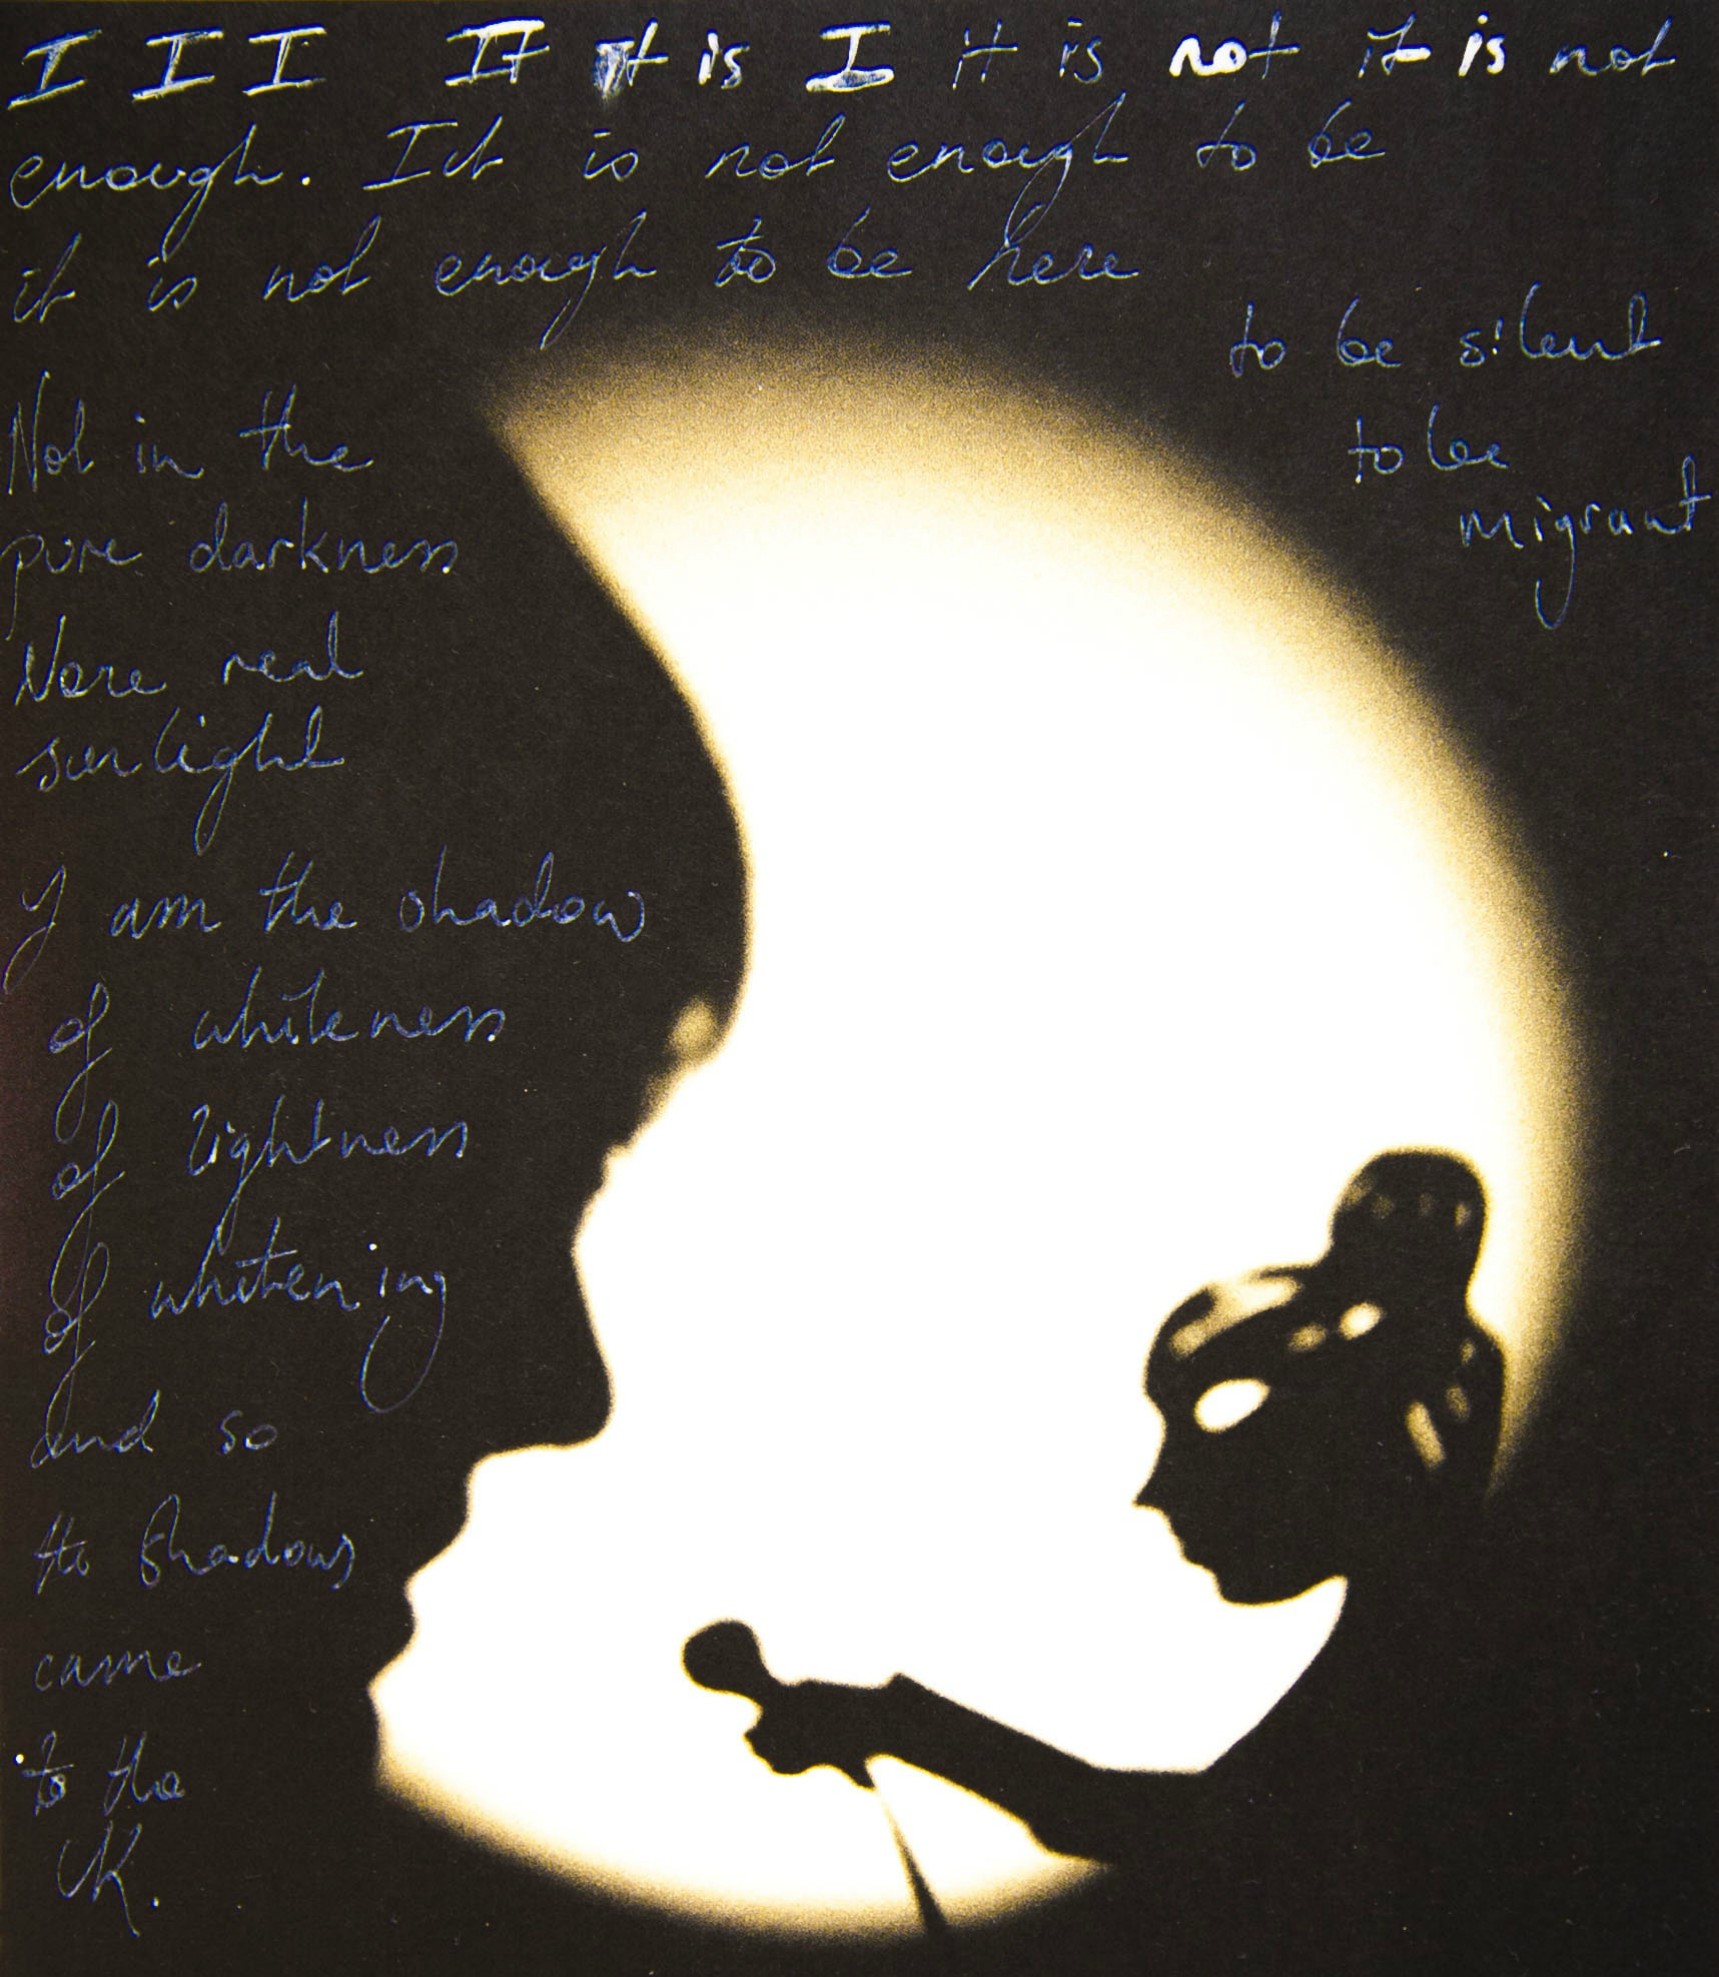 I I I It It is I it is not it is not
enough. It is not enough to be
it is not enough to be here
to be silent
to be
migrant
Not in the
pure darkness
Nore real
sunlight
I am the shadow
of whiteness
of lightness
of whitening
and so
the shadows
came
to the
UK.